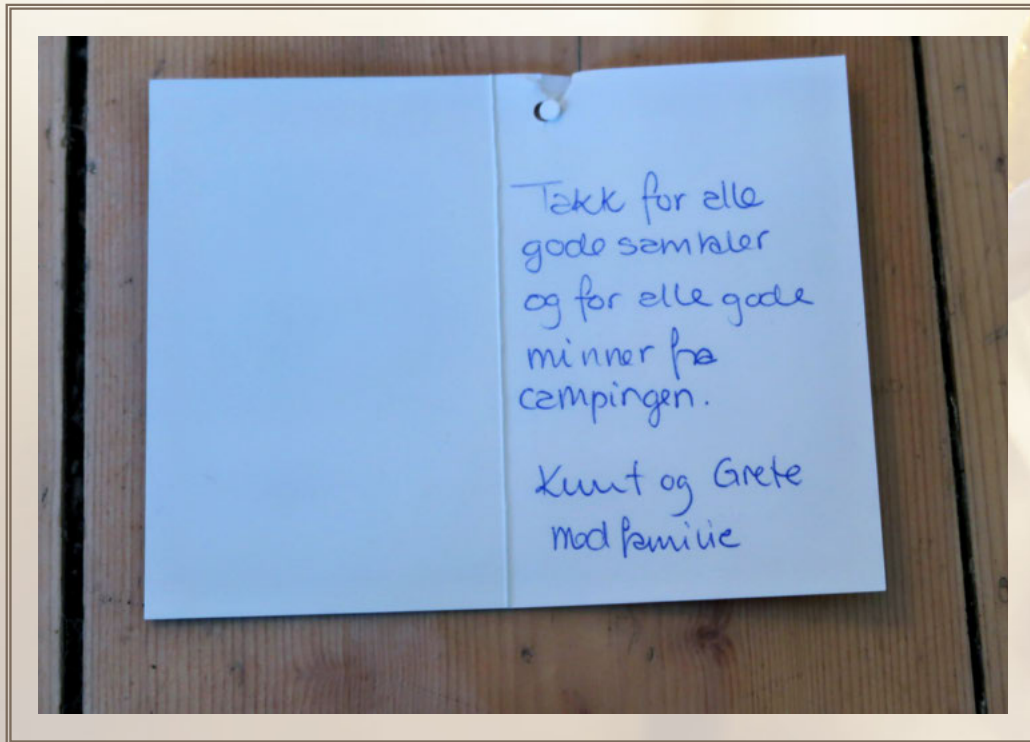 Takk for alle
gode samtaler
og for alle gode
minner fra
campingen.
Knut og Grete
med familie